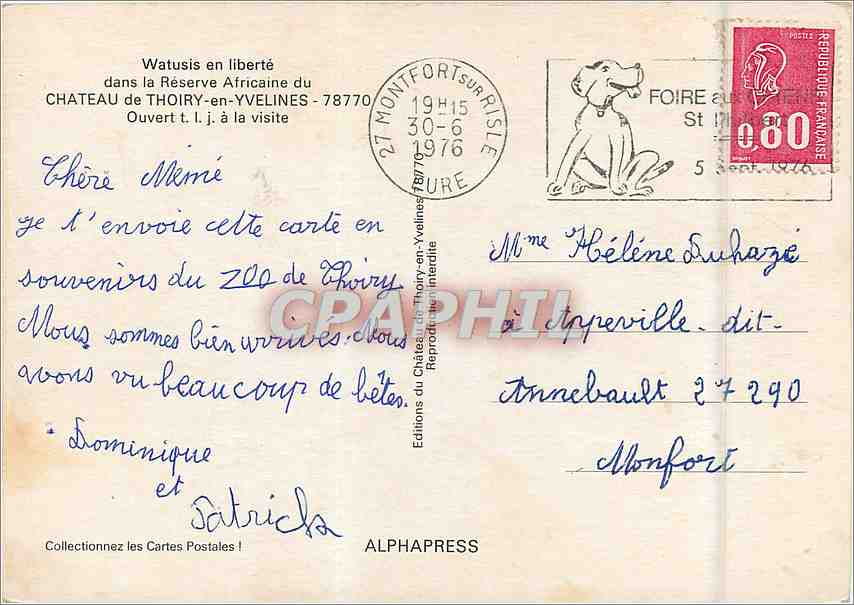 Watusis en liberté
dans la Réserve Africaine du
CHATEAU de THOIRY-en-YVELINES - 78770
Ouvert t. l. j. à la visite
27 MONTFORT SUR RISLE
19H15
30-6
1976
EURE
FOIRE aux
St
5 Sept. 1976
POSTES
REPUBLIQUE FRANÇAISE
0,80
Chère Mémé
je t'envoie cette carte en
souvenirs du ZOO de Thoiry
Nous sommes bien arrivés. Nous
avons vu beaucoup de bêtes.
Dominique
et
Patrick
Editions du Château de Thoiry-en-Yvelines 78770
Reproduction interdite
Mme Hélène Duhazé
à Appeville-dit-
Annebault 27290
Monfort
CPAPHIL
Collectionnez les Cartes Postales !
ALPHAPRESS